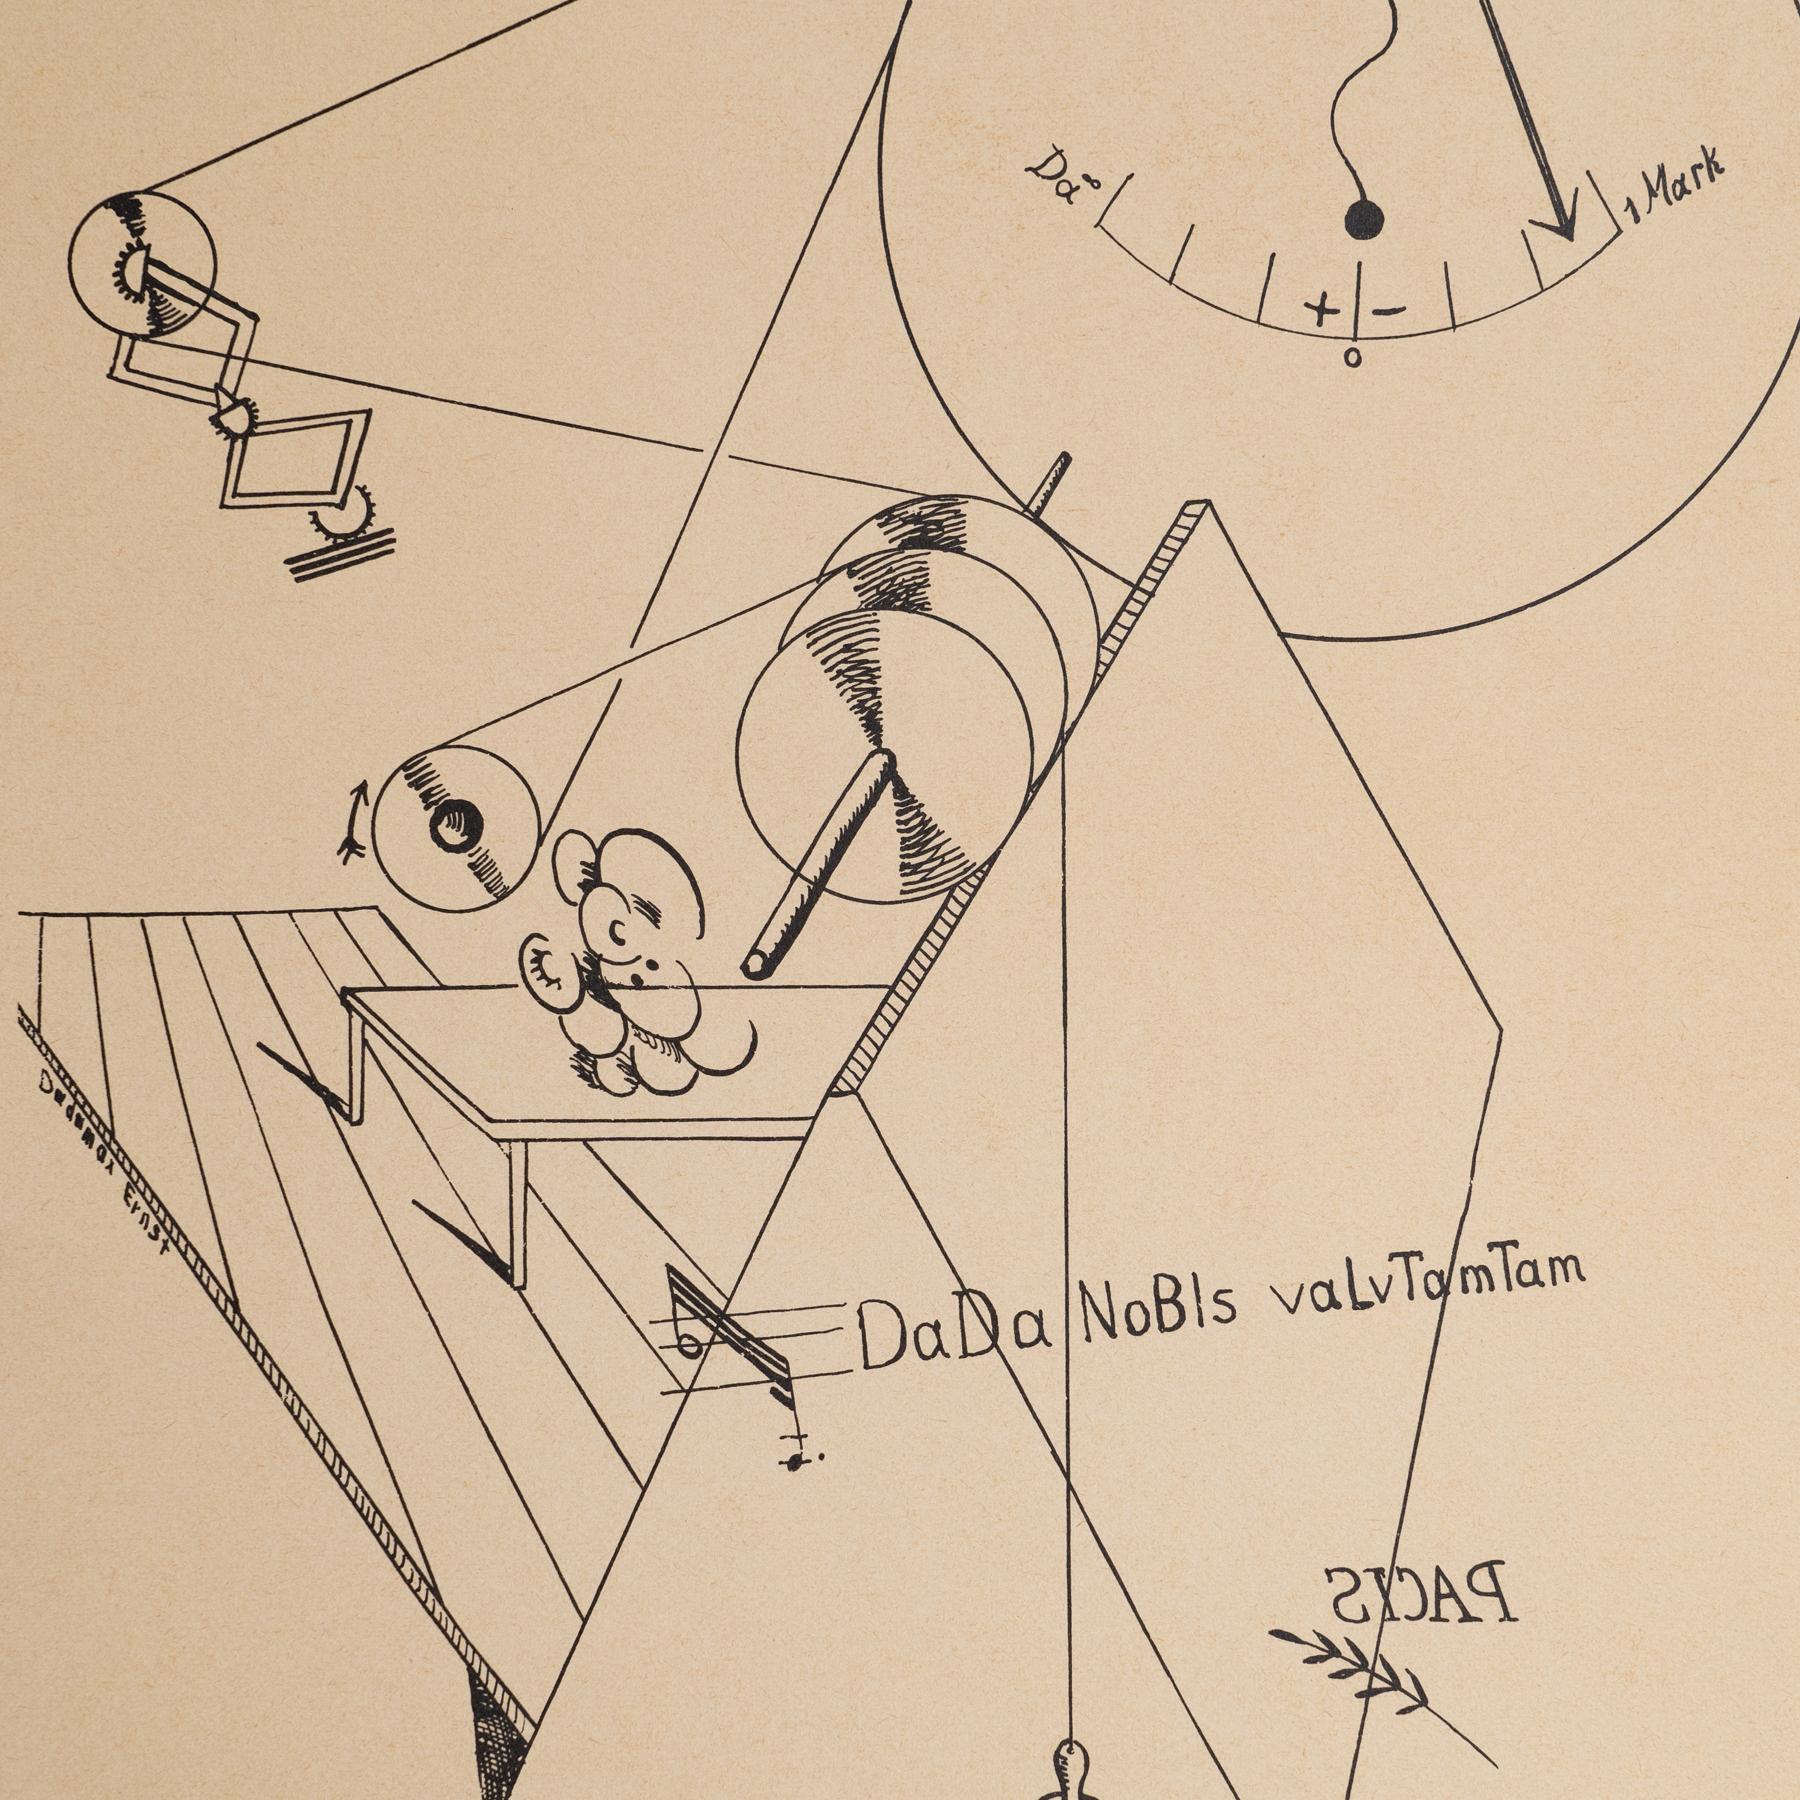 Da°
1 Mark
+ -
0
Dadamax Ernst
DaDa NoBIs vaLvTamTam
PACIS